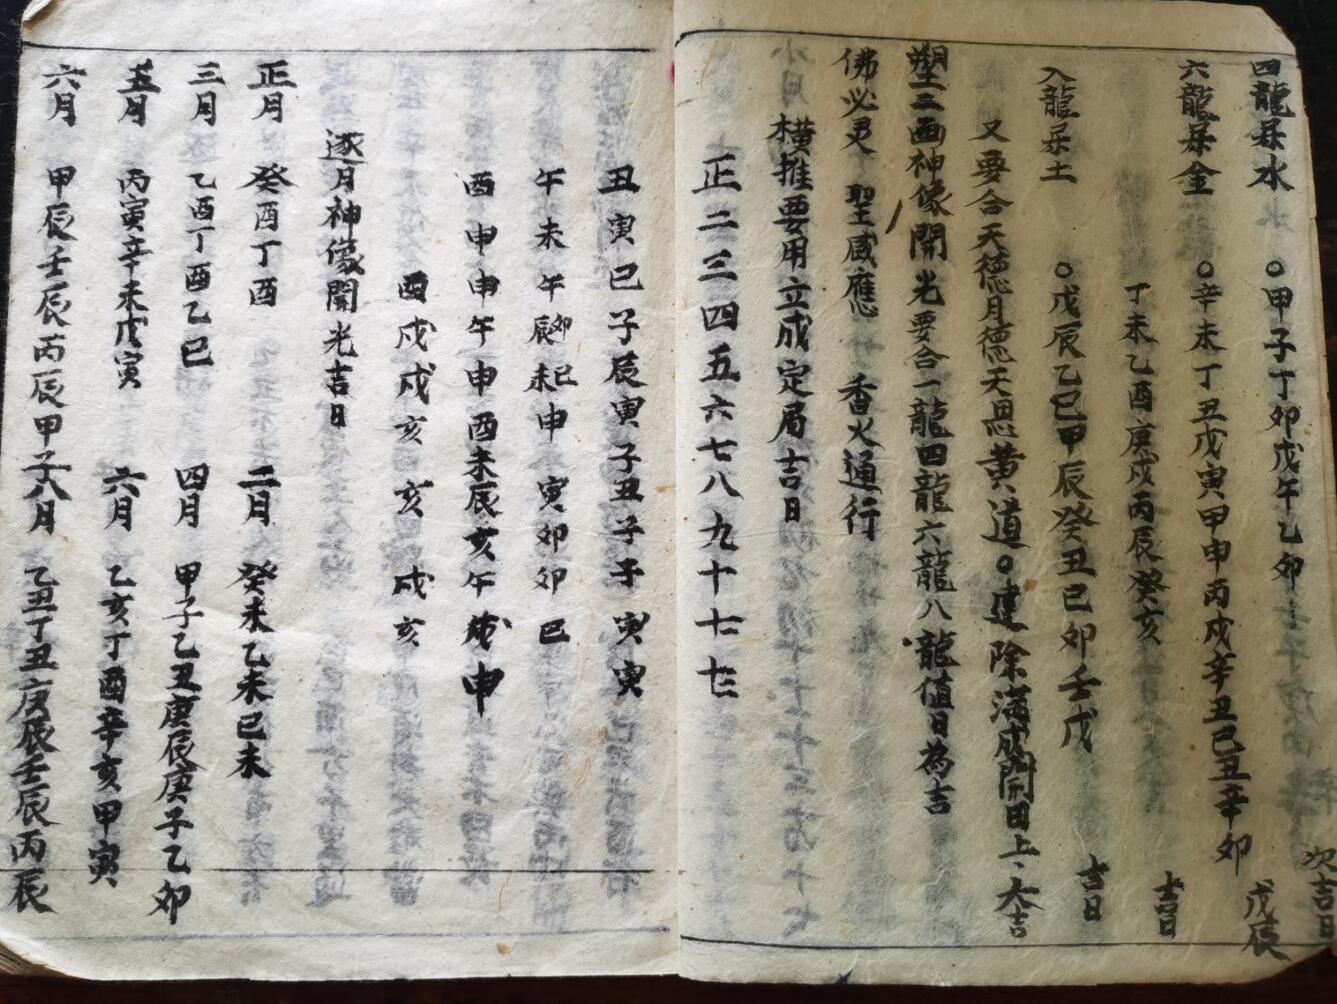 次吉日
四龍呆水 ○甲子丁卯戊午乙卯 戊辰
六龍呆金 ○辛未丁丑戊寅甲申丙戌辛丑己丑辛卯
丁未乙酉庚戌丙辰癸亥 吉日
八龍呆土 ○戊辰乙巳甲辰癸丑己卯壬戌 吉日
又要合天德月德天恩黄道○建除滿成開日上、大吉
塑三画神像開光要合一龍四龍六龍八龍值日為吉
佛必灵 聖感應 香火通行
橫推要用立成定局吉日
正二三四五六七八九十十一十二
丑寅巳子辰寅子丑子子寅寅
午未午辰卯未巳申寅卯卯巳
酉申申午申酉未辰亥午戌申
酉戌戌亥亥戌亥
逐月神像開光吉日
正月 癸酉丁酉 二月 癸未乙未己未
三月 乙酉丁酉乙巳 四月 甲子乙丑庚辰庚子乙卯
五月 丙寅辛未戊寅 六月 乙亥丁酉辛亥甲寅
六月 甲辰壬辰丙辰甲子 八月 乙丑丁丑庚辰壬辰丙辰